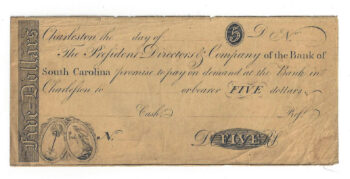 Five-Dollars
Charleston the day of 5 D No
The President Directors & Company of the Bank of
South Carolina promise to pay on demand at the Bank in
Charleston to or bearer FIVE dollars
Cash. Prest.
No D FIVE S